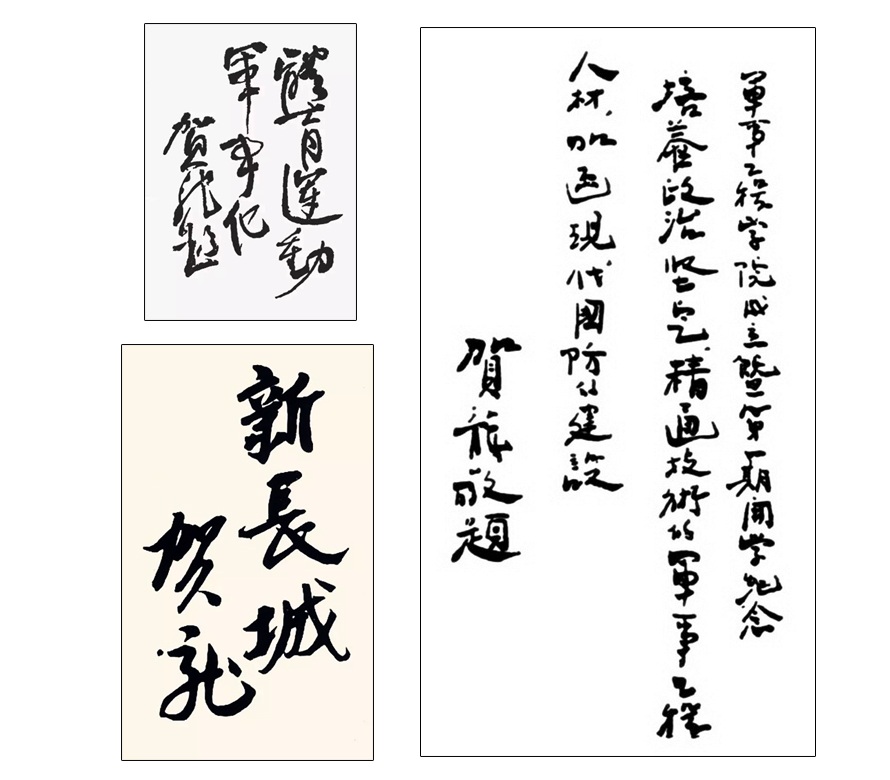 體育運動
軍事化
賀龍題
新長城
贺龙
軍事工程学院成立暨第一期開学紀念
培養政治坚定，精通技術的軍事工程
人材，加速現代國防的建設
賀龍敬題